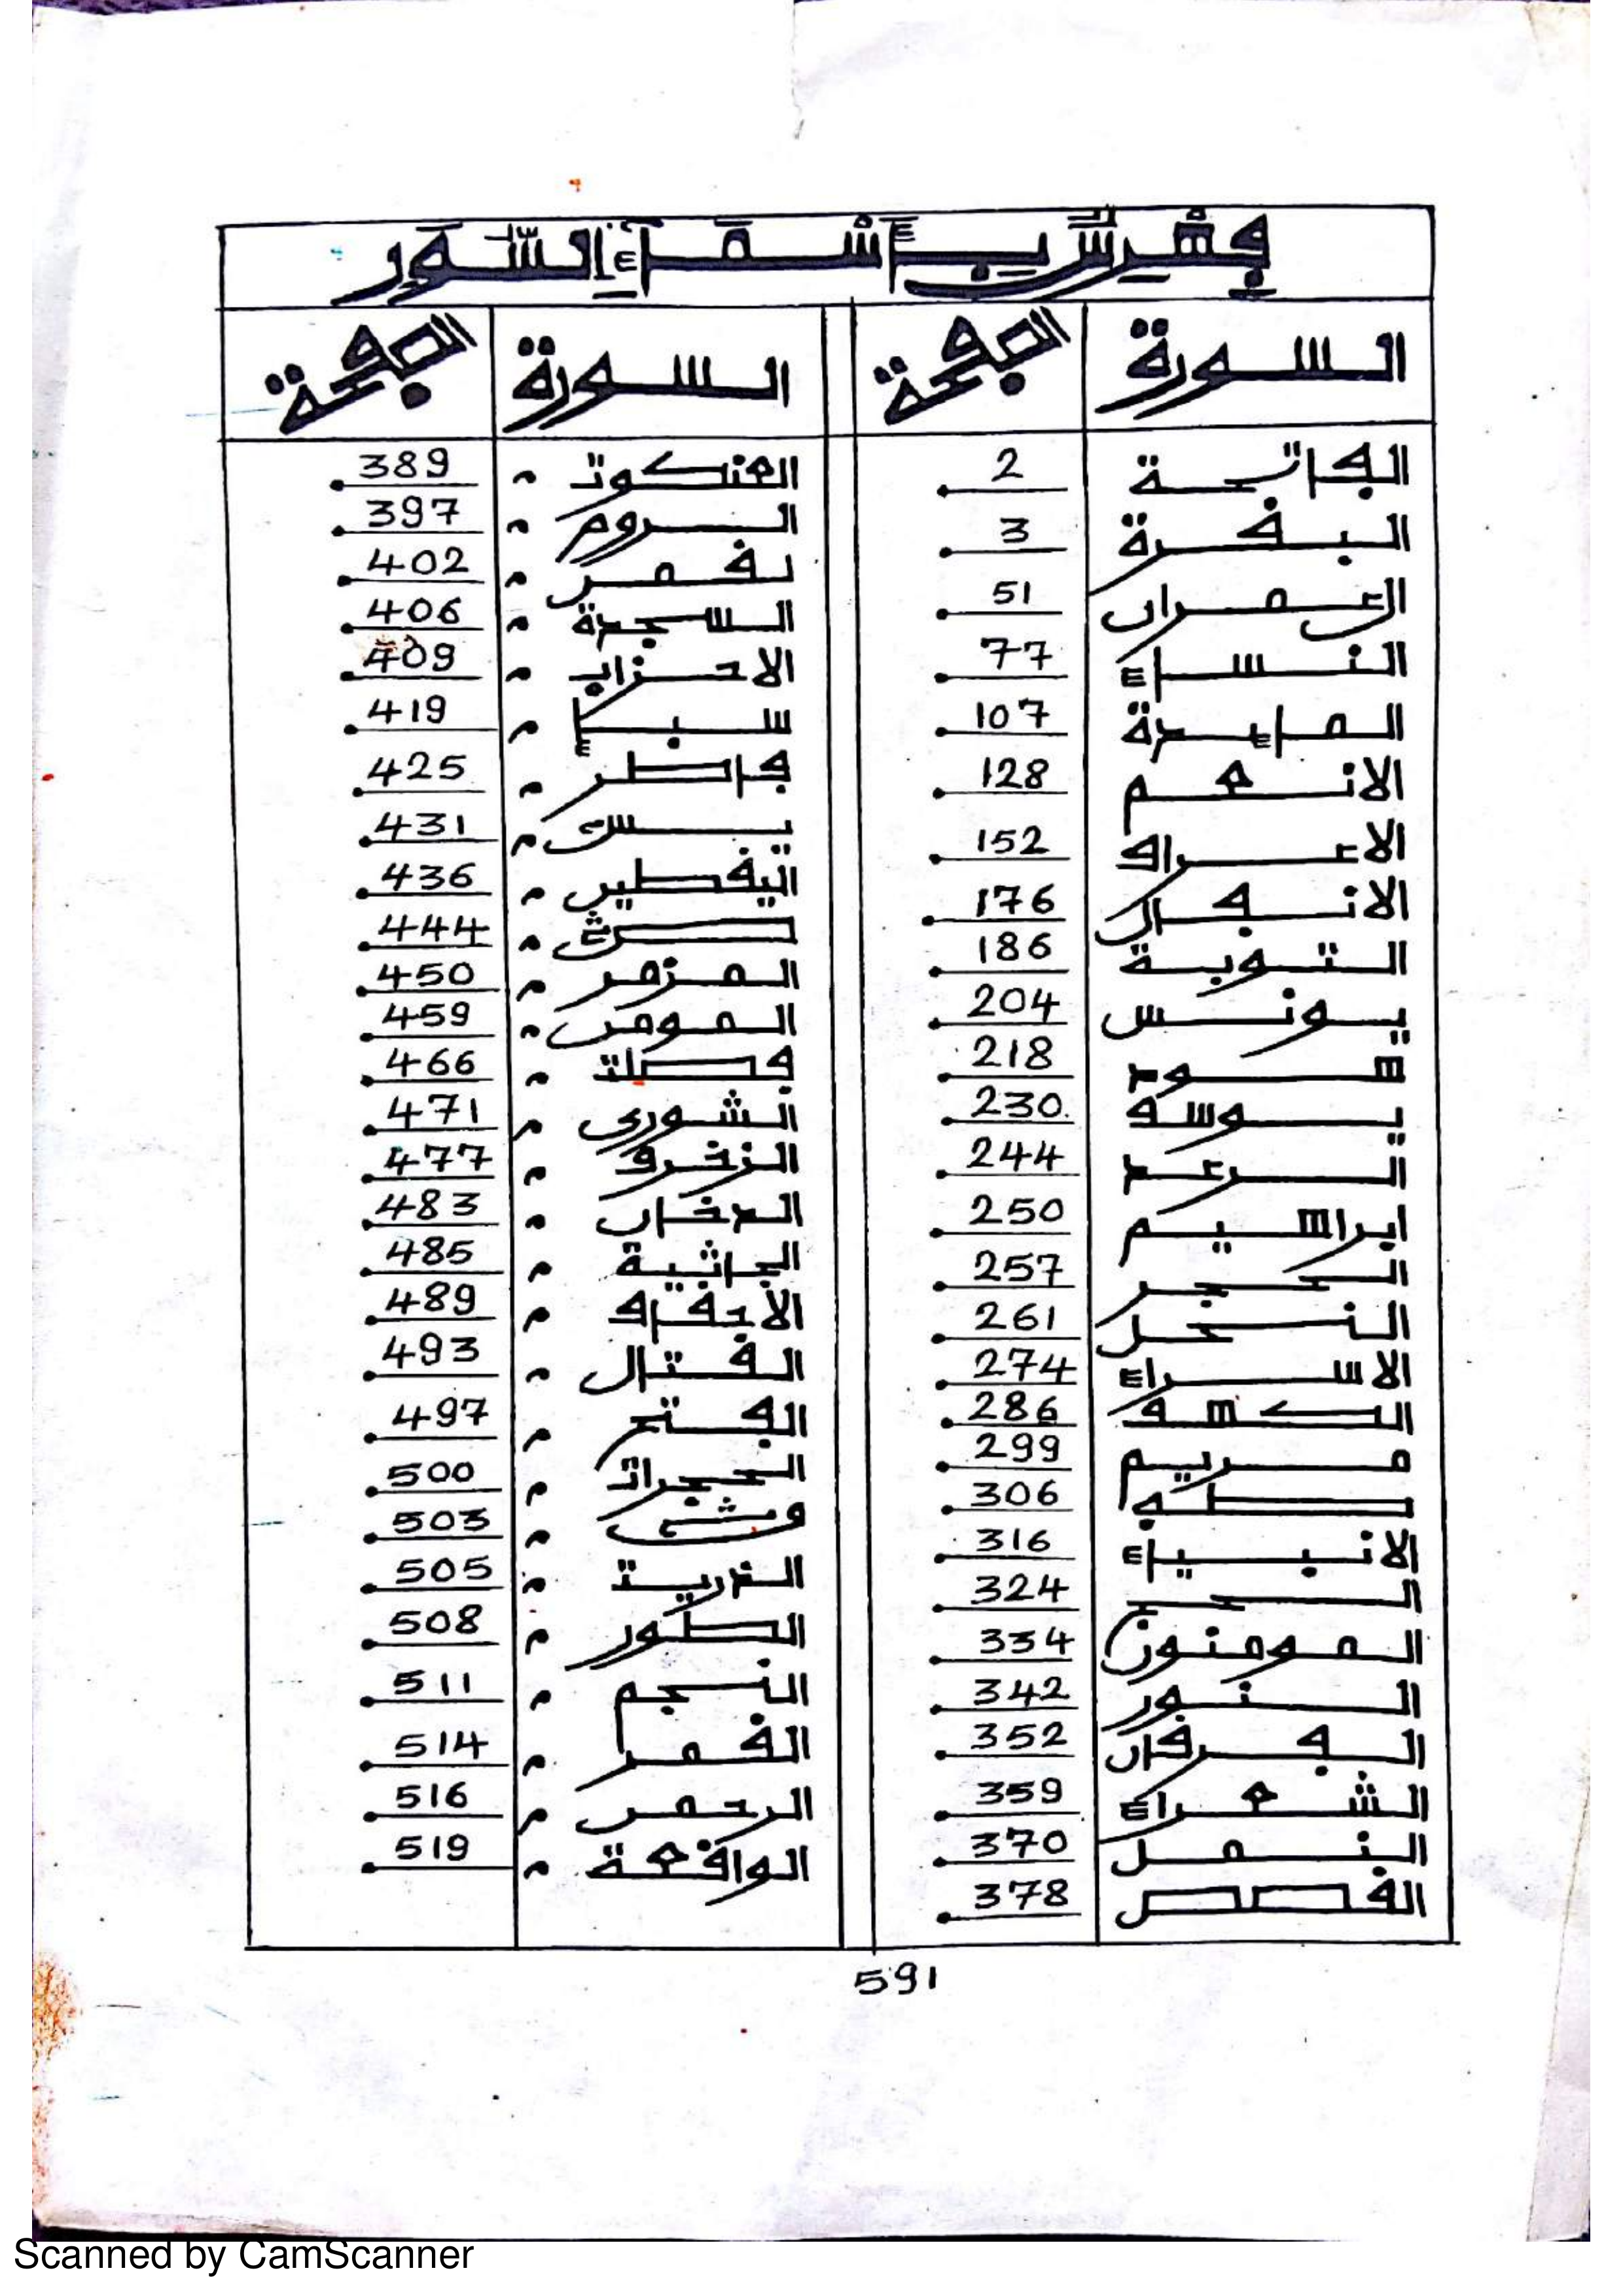 فهرس بأسماء السور
السورة الصفحة السورة الصفحة
الفاتحة 2 العنكبوت 389
البفرة 3 الروم 397
ال عمران 51 لفمن 402
النساء 77 السجدة 406
المايدة 107 الاحزاب 409
الانعم 128 سبأ 419
الاعراف 152 فاطر 425
الانفال 176 يس 431
التوبة 186 اليفطين 436
يونس 204 ص 444
هود 218 الزمر 450
يوسف 230 المومن 459
الرعد 244 فصلت 466
ابراهيم 250 الشورى 471
الحجر 257 الزخرف 477
النحل 261 الدخان 483
الاسراء 274 الجاثية 485
الكهف 286 الأحفاف 489
مريم 299 الفتال 493
طه 306 الفتح 497
الانبياء 316 الحجرات 500
الحج 324 503
المومنون 334 الذريت 505
النور 342 الطور 508
الفرفان 352 النجم 511
الشعراء 359 الفمر 514
النمل 370 الرحمن 516
الفصص 378 الوافعة 519
591
Scanned by CamScanner